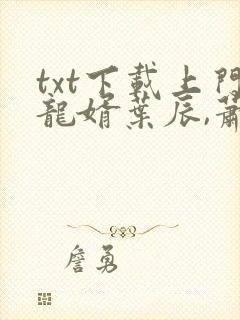 txt下載上門
龍婿葉辰,蕭
詹勇